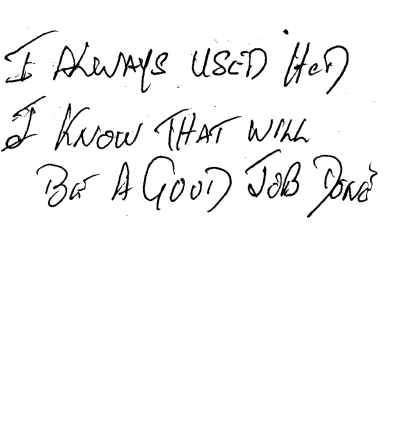 I ALWAYS USED HER
I KNOW THAT WILL
BE A GOOD JOB DONE